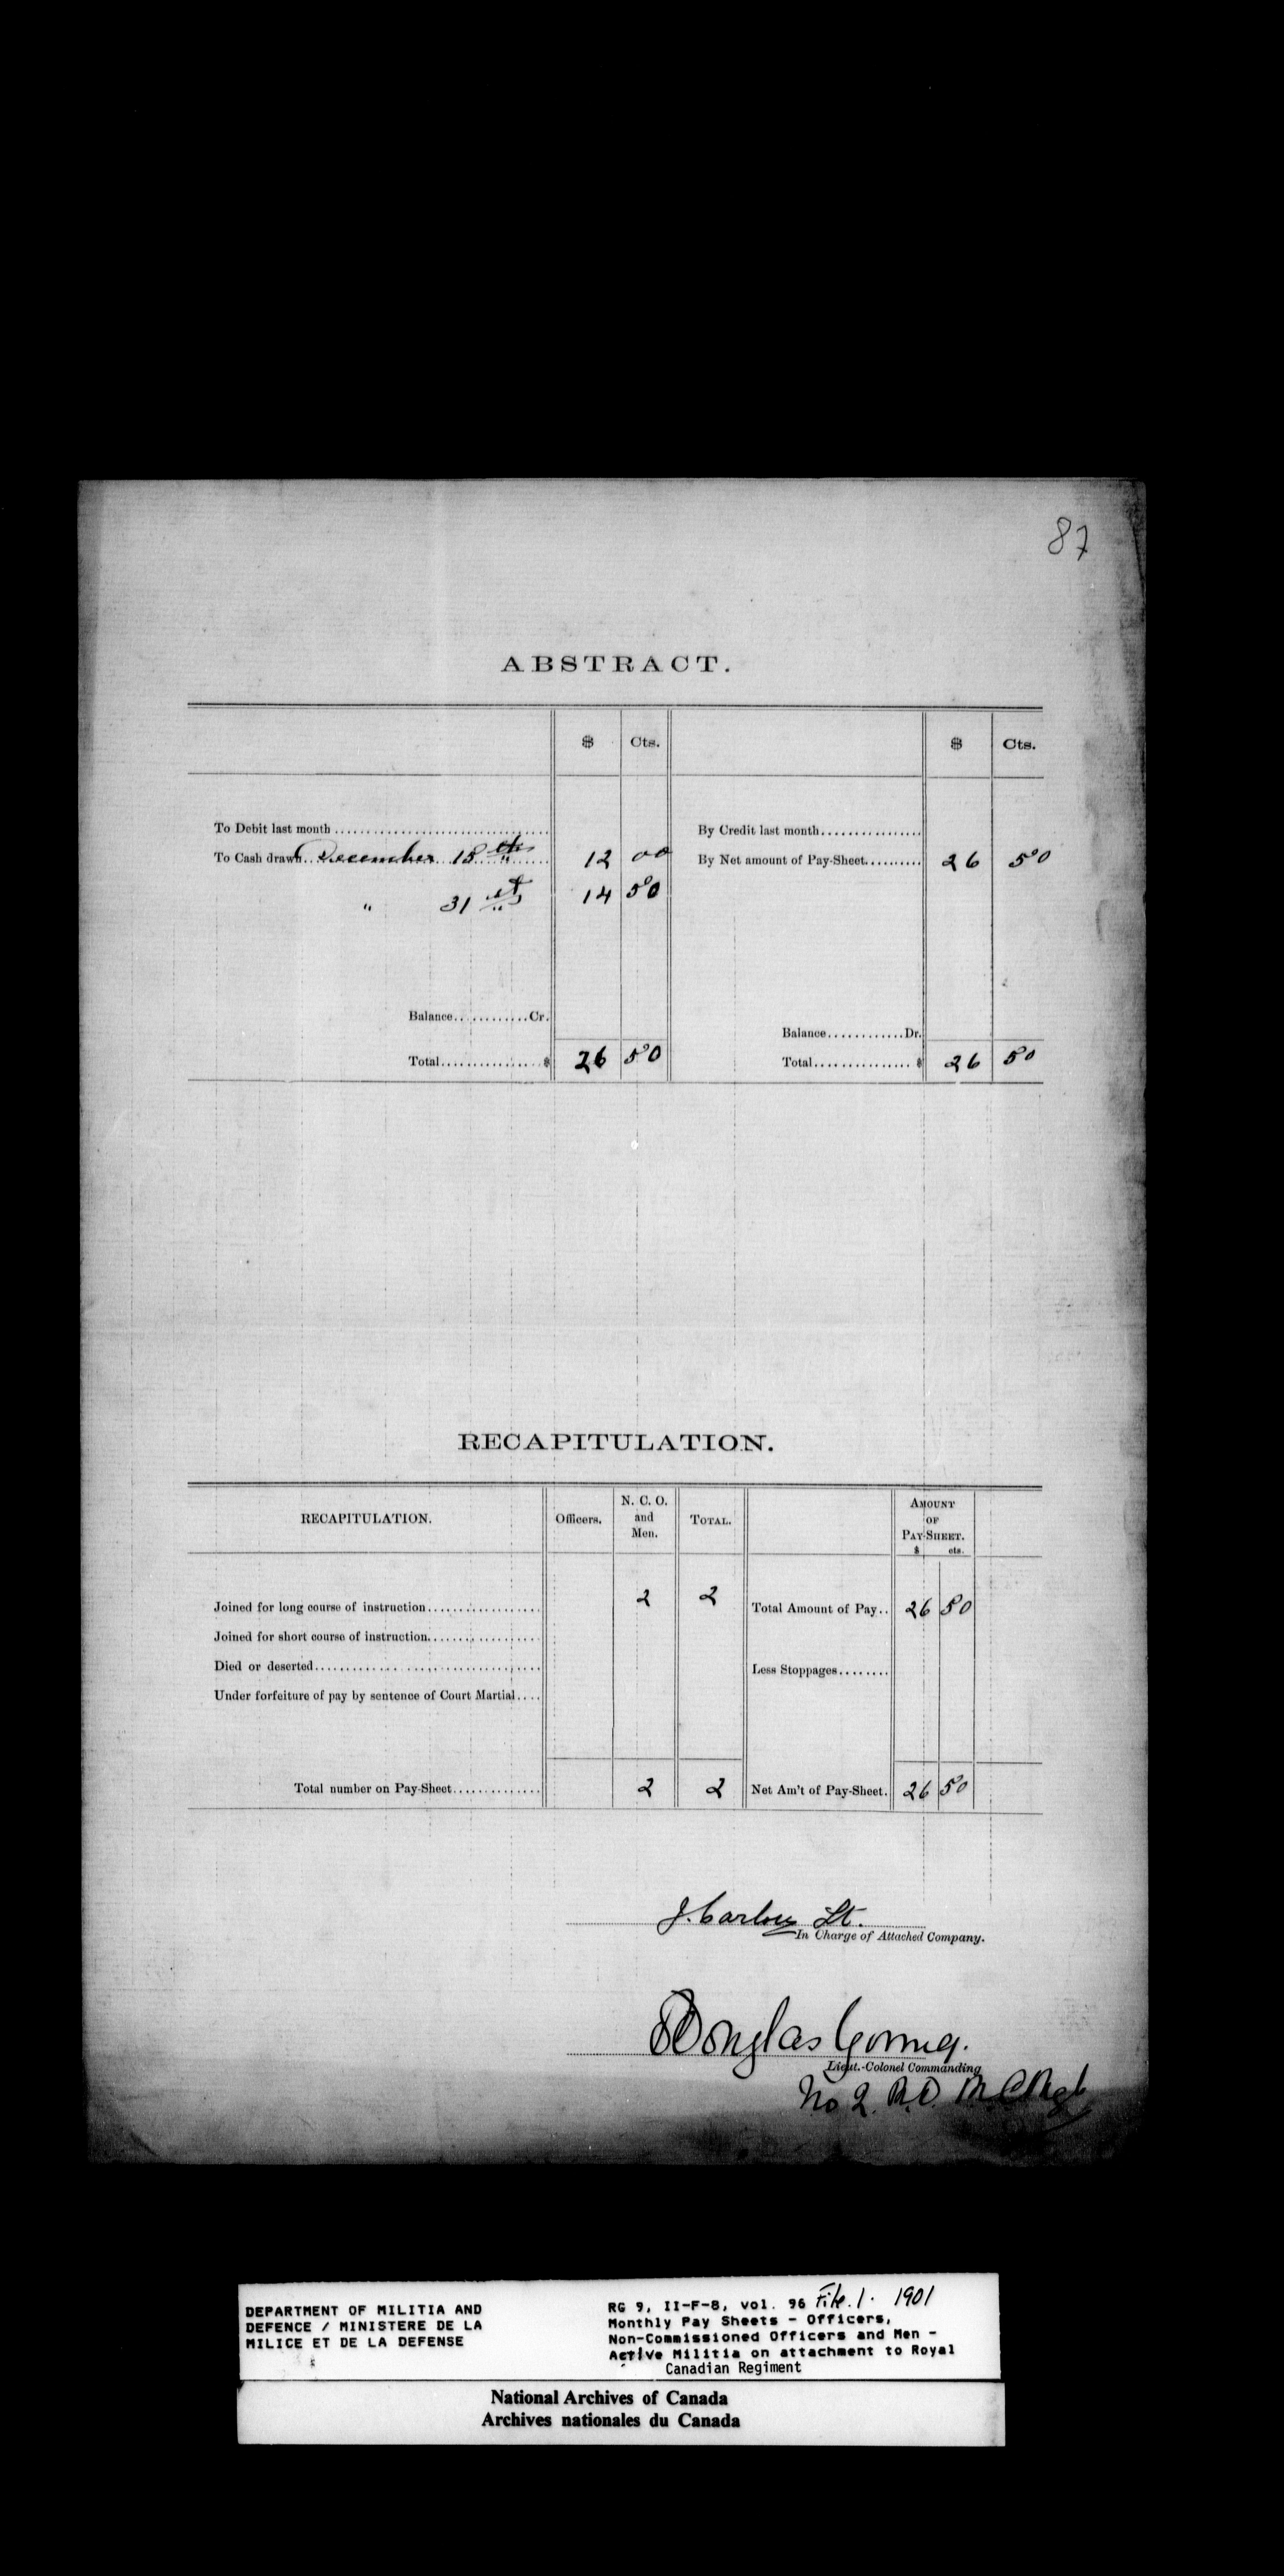 87
ABSTRACT.
$ Cts. $ Cts.
To Debit last month By Credit last month
To Cash drawn December 15th 12 00 By Net amount of Pay-Sheet 26 50
" 31st 14 50
Balance Cr.
Balance Dr.
Total $ 26 50 Total $ 26 50
RECAPITULATION.
RECAPITULATION. Officers. N. C. O. and Men. TOTAL. AMOUNT OF PAY-SHEET. $ cts.
Joined for long course of instruction 2 2 Total Amount of Pay 26 50
Joined for short course of instruction
Died or deserted Less Stoppages
Under forfeiture of pay by sentence of Court Martial
Total number on Pay-Sheet 2 2 Net Am't of Pay-Sheet. 26 50
J. Lt.
In Charge of Attached Company.
Douglas Young.
Lieut.-Colonel Commanding
No 2. R.D. R.C.Regt
DEPARTMENT OF MILITIA AND
DEFENCE / MINISTERE DE LA
MILICE ET DE LA DEFENSE
RG 9, II-F-8, vol. 96 File. 1. 1901
Monthly Pay Sheets - Officers,
Non-Commissioned Officers and Men -
Active Militia on attachment to Royal
Canadian Regiment
National Archives of Canada
Archives nationales du Canada